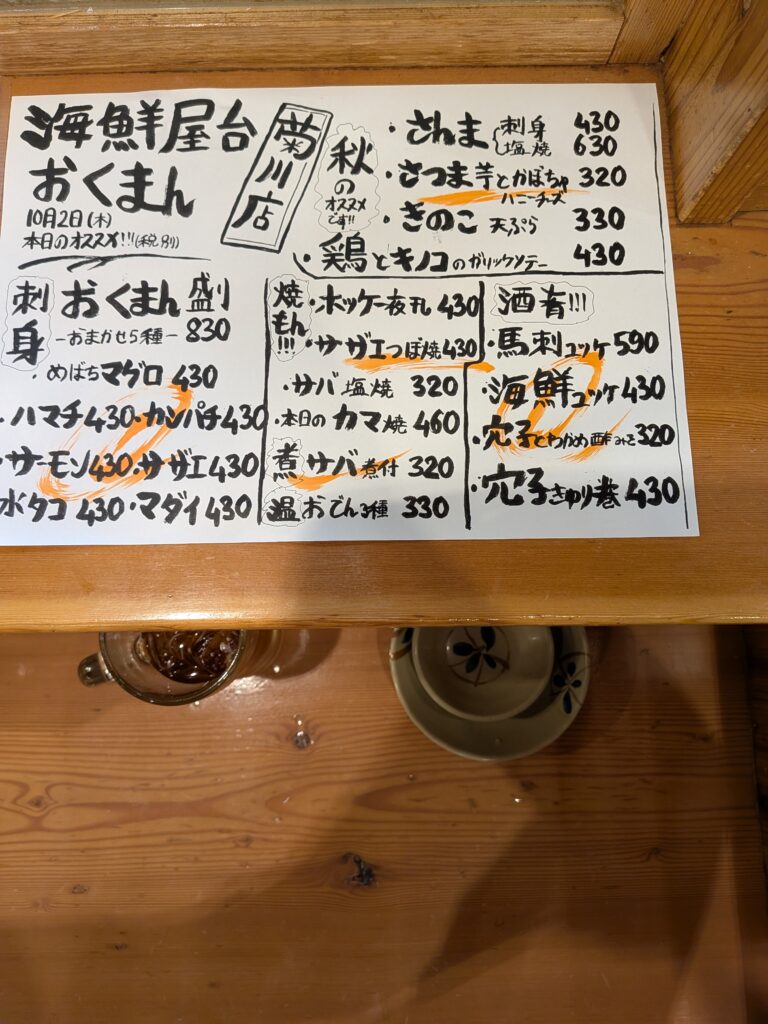 海鮮屋台
おくまん
菊川店
10月2日(木)
本日のオススメ!!!(税別)
秋のオススメです!!
・さんま 刺身 430
塩焼 630
・さつま芋とかぼちゃ 320
ハニーチーズ
・きのこ 天ぷら 330
・鶏とキノコのガリックソテー 430
刺身
おくまん盛り
-おまかせ5種- 830
・めばちマグロ 430
・ハマチ 430・カンパチ 430
・サーモン 430・サザエ 430
水タコ 430・マダイ 430
焼もん!!!
・ホッケ一夜干し 430
・サザエつぼ焼 430
・サバ塩焼 320
・本日のカマ焼 460
煮 サバ煮付 320
温 おでん3種 330
酒肴!!!
・馬刺ユッケ 590
・海鮮ユッケ 430
・穴子とわかめ酢みそ 320
・穴子きゅうり巻 430